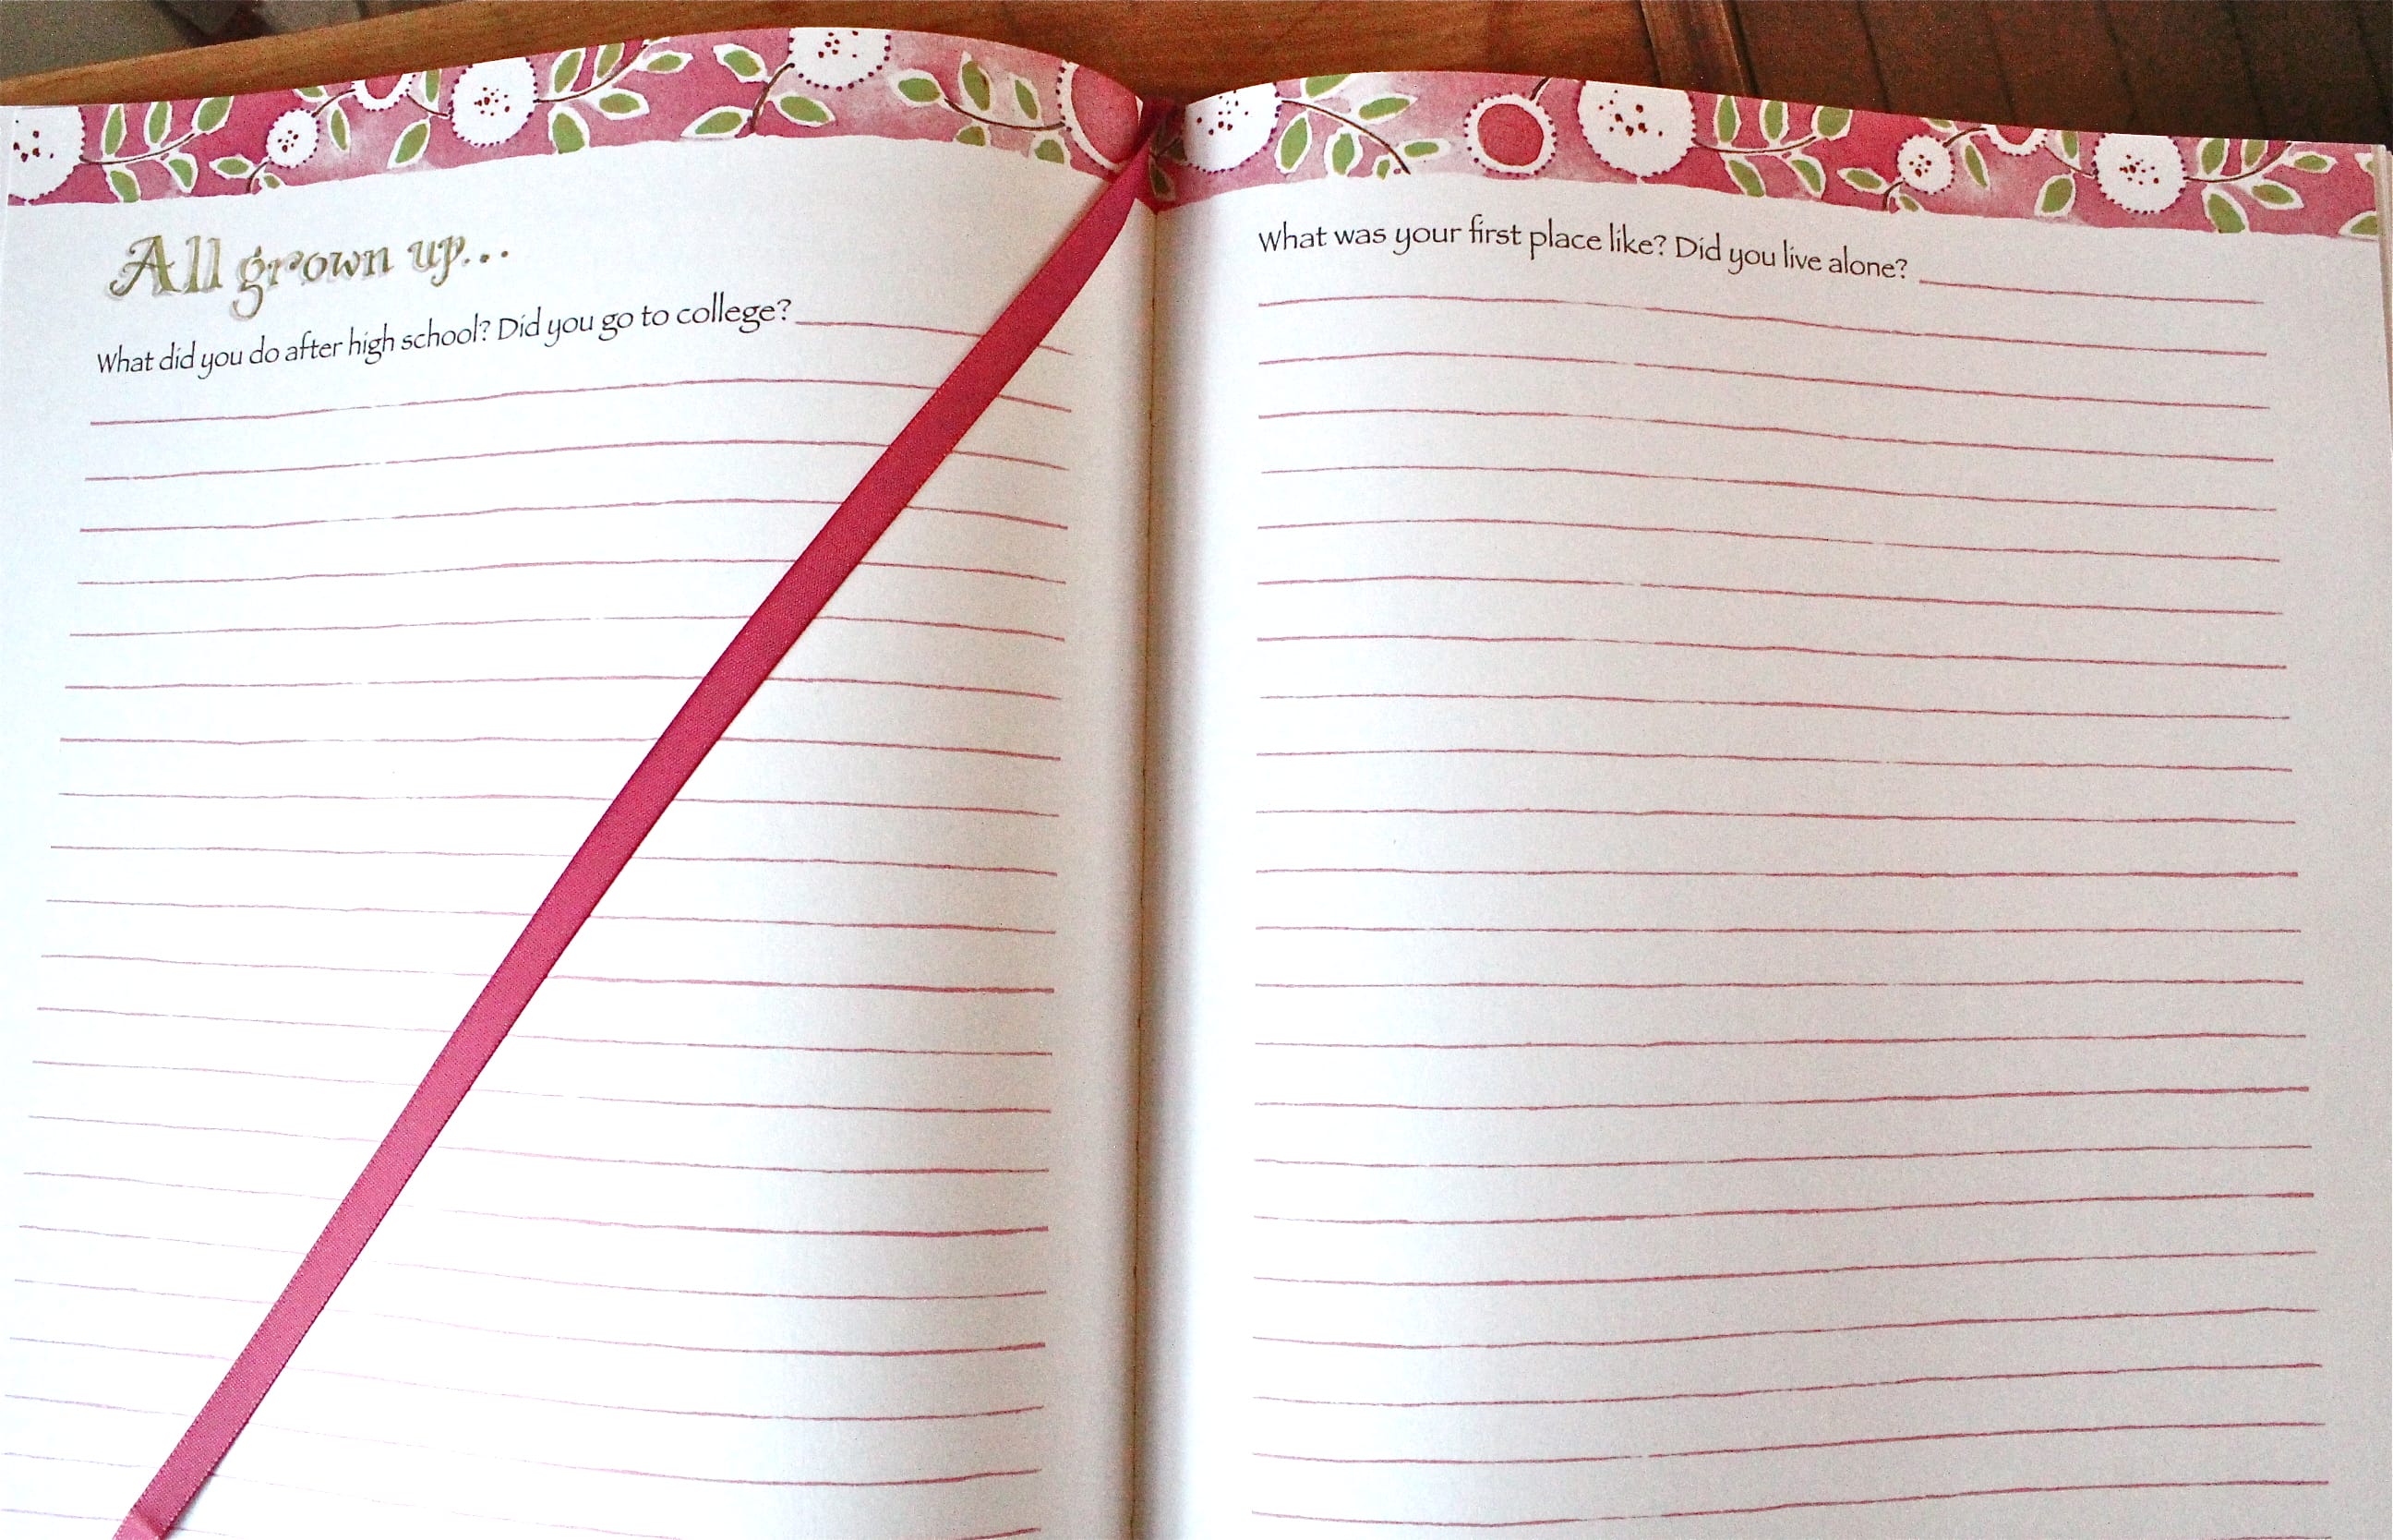 All grown up...
What did you do after high school? Did you go to college?
What was your first place like? Did you live alone?